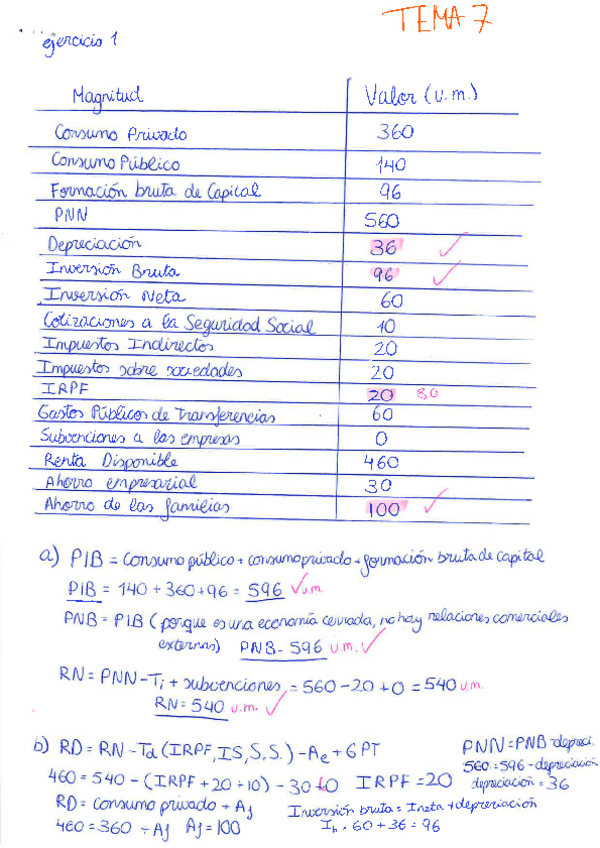 TEMA 7
ejercicio 1
Magnitud Valor (u.m.)
Consumo Privado 360
Consumo Público 140
Formación bruta de Capital 96
PNN 560
Depreciación 36 ✓
Inversión Bruta 96 ✓
Inversión Neta 60
Cotizaciones a la Seguridad Social 10
Impuestos Indirectos 20
Impuestos sobre sociedades 20
IRPF 20 80
Gastos Públicos de Transferencias 60
Subvenciones a las empresas 0
Renta Disponible 460
Ahorro empresarial 30
Ahorro de las familias 100 ✓
a) PIB = Consumo público + consumo privado + formación bruta de capital
PIB = 140 + 360 + 96 = 596 ✓ u.m.
PNB = PIB (porque es una economía cerrada, no hay relaciones comerciales
externas) PNB = 596 u.m. ✓
RN = PNN - Ti + subvenciones = 560 - 20 + 0 = 540 u.m.
RN = 540 u.m. ✓
b) RD = RN - Td (IRPF, IS, S.S.) - Ae + GPT
460 = 540 - (IRPF + 20 + 10) - 30 + IRPF = 20
RD = consumo privado + Af
460 = 360 + Af Af = 100
PNN = PNB - depreci.
560 = 596 - depreciación
depreciación = 36
Inversión bruta = Ineta + depreciación
Ib = 60 + 36 = 96